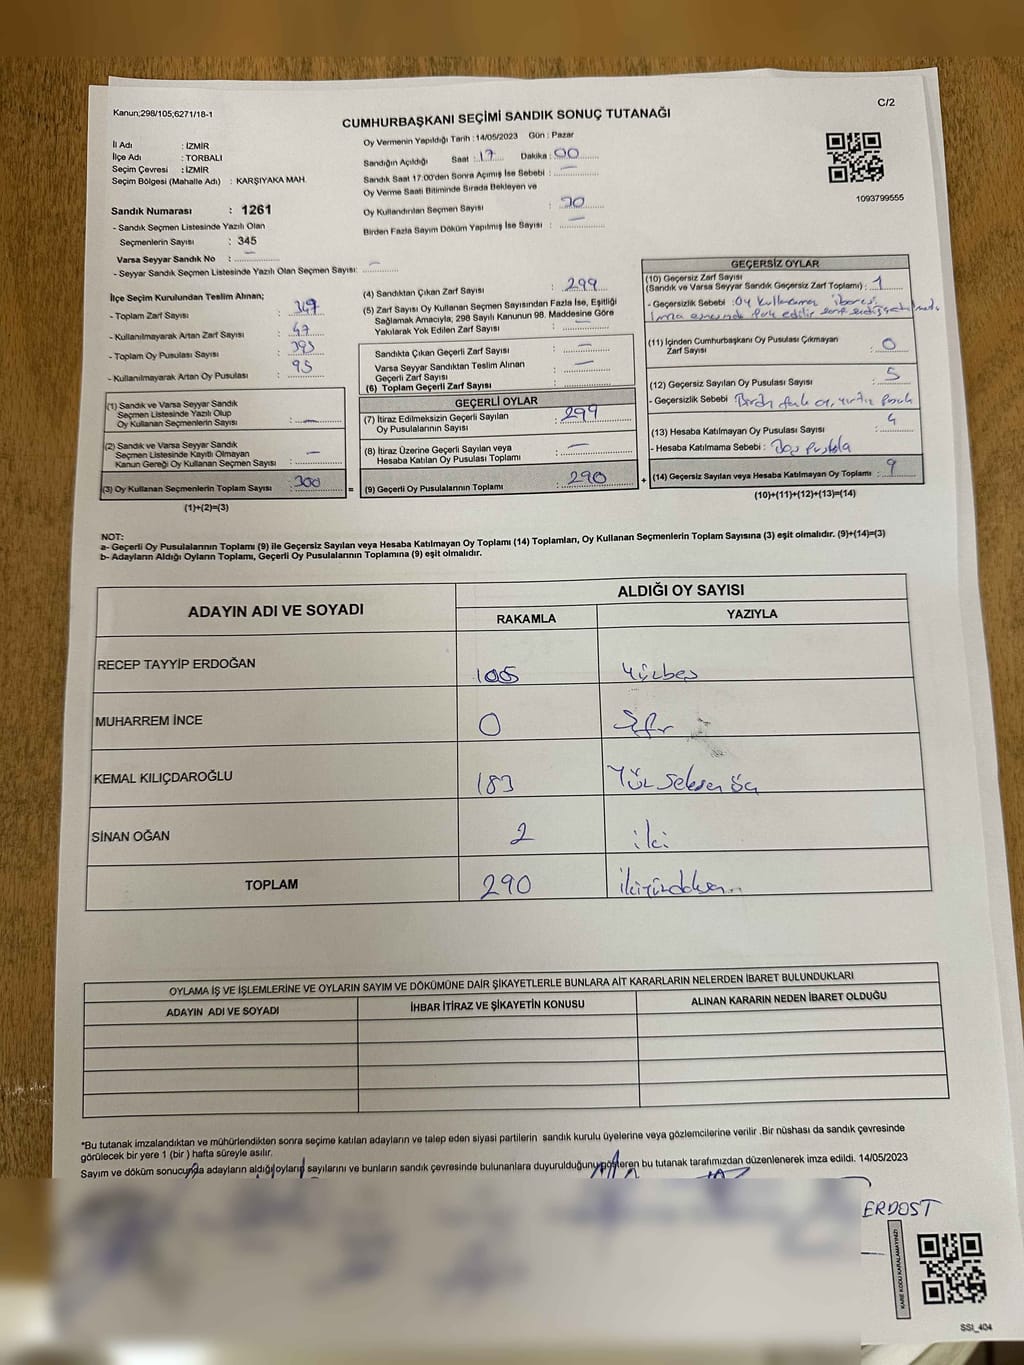 Kanun;298/105;6271/18-1
C/2
CUMHURBAŞKANI SEÇİMİ SANDIK SONUÇ TUTANAĞI
İl Adı : İZMİR
İlçe Adı : TORBALI
Seçim Çevresi : İZMİR
Seçim Bölgesi (Mahalle Adı) : KARŞIYAKA MAH.
Sandık Numarası : 1261
- Sandık Seçmen Listesinde Yazılı Olan
Seçmenlerin Sayısı : 345
Varsa Seyyar Sandık No : –
- Seyyar Sandık Seçmen Listesinde Yazılı Olan Seçmen Sayısı: –
Oy Vermenin Yapıldığı Tarih : 14/05/2023 Gün : Pazar
Sandığın Açıldığı Saat : 17 Dakika : 00
Sandık Saat 17:00'den Sonra Açımış İse Sebebi : –
Oy Verme Saati Bitiminde Sırada Bekleyen ve
Oy Kullandırılan Seçmen Sayısı :
Birden Fazla Sayım Döküm Yapılmış İse Sayısı : –
1093799555
İlçe Seçim Kurulundan Teslim Alınan;
- Toplam Zarf Sayısı : 347
- Kullanılmayarak Artan Zarf Sayısı : 47
- Toplam Oy Pusulası Sayısı : 395
- Kullanılmayarak Artan Oy Pusulası : 95
(1) Sandık ve Varsa Seyyar Sandık
Seçmen Listesinde Yazılı Olup
Oy Kullanan Seçmenlerin Sayısı : –
(2) Sandık ve Varsa Seyyar Sandık
Seçmen Listesinde Kayıtlı Olmayan
Kanun Gereği Oy Kullanan Seçmen Sayısı : –
(3) Oy Kullanan Seçmenlerin Toplam Sayısı : 300
(1)+(2)=(3)
(4) Sandıktan Çıkan Zarf Sayısı : 299
(5) Zarf Sayısı Oy Kullanan Seçmen Sayısından Fazla İse, Eşitliği
Sağlamak Amacıyla, 298 Sayılı Kanunun 98. Maddesine Göre
Yakılarak Yok Edilen Zarf Sayısı : –
Sandıkta Çıkan Geçerli Zarf Sayısı : –
Varsa Seyyar Sandıktan Teslim Alınan
Geçerli Zarf Sayısı : –
(6) Toplam Geçerli Zarf Sayısı :
GEÇERLİ OYLAR
(7) İtiraz Edilmeksizin Geçerli Sayılan
Oy Pusulalarının Sayısı : 299
(8) İtiraz Üzerine Geçerli Sayılan veya
Hesaba Katılan Oy Pusulası Toplamı : –
= (9) Geçerli Oy Pusulalarının Toplamı : 290 +
GEÇERSİZ OYLAR
(10) Geçersiz Zarf Sayısı
(Sandık ve Varsa Seyyar Sandık Geçersiz Zarf Toplamı) : 1
- Geçersizlik Sebebi : Oy kullanma ibaresi
(11) İçinden Cumhurbaşkanı Oy Pusulası Çıkmayan
Zarf Sayısı : 0
(12) Geçersiz Sayılan Oy Pusulası Sayısı : 5
- Geçersizlik Sebebi
(13) Hesaba Katılmayan Oy Pusulası Sayısı : 4
- Hesaba Katılmama Sebebi : Boş Pusula
(14) Geçersiz Sayılan veya Hesaba Katılmayan Oy Toplamı : 9
(10)+(11)+(12)+(13)=(14)
NOT:
a- Geçerli Oy Pusulalarının Toplamı (9) ile Geçersiz Sayılan veya Hesaba Katılmayan Oy Toplamı (14) Toplamları, Oy Kullanan Seçmenlerin Toplam Sayısına (3) eşit olmalıdır. (9)+(14)=(3)
b- Adayların Aldığı Oyların Toplamı, Geçerli Oy Pusulalarının Toplamına (9) eşit olmalıdır.
ADAYIN ADI VE SOYADI
ALDIĞI OY SAYISI
RAKAMLA YAZIYLA
RECEP TAYYİP ERDOĞAN 105 Yüzbeş
MUHARREM İNCE 0 Sıfır
KEMAL KILIÇDAROĞLU 183 Yüz Seksen üç
SİNAN OĞAN 2 iki
TOPLAM 290 ikiyüzdoksan
OYLAMA İŞ VE İŞLEMLERİNE VE OYLARIN SAYIM VE DÖKÜMÜNE DAİR ŞİKAYETLERLE BUNLARA AİT KARARLARIN NELERDEN İBARET BULUNDUKLARI
ADAYIN ADI VE SOYADI İHBAR İTİRAZ VE ŞİKAYETİN KONUSU ALINAN KARARIN NEDEN İBARET OLDUĞU
*Bu tutanak imzalandıktan ve mühürlendikten sonra seçime katılan adayların ve talep eden siyasi partilerin sandık kurulu üyelerine veya gözlemcilerine verilir .Bir nüshası da sandık çevresinde
görülecek bir yere 1 (bir ) hafta süreyle asılır.
Sayım ve döküm sonucunda adayların aldığı oyların sayılarını ve bunların sandık çevresinde bulunanlara duyurulduğunu gösteren bu tutanak tarafımızdan düzenlenerek imza edildi. 14/05/2023
ERDOST
KARE KODU KARALAMAYINIZ!
SSI_404